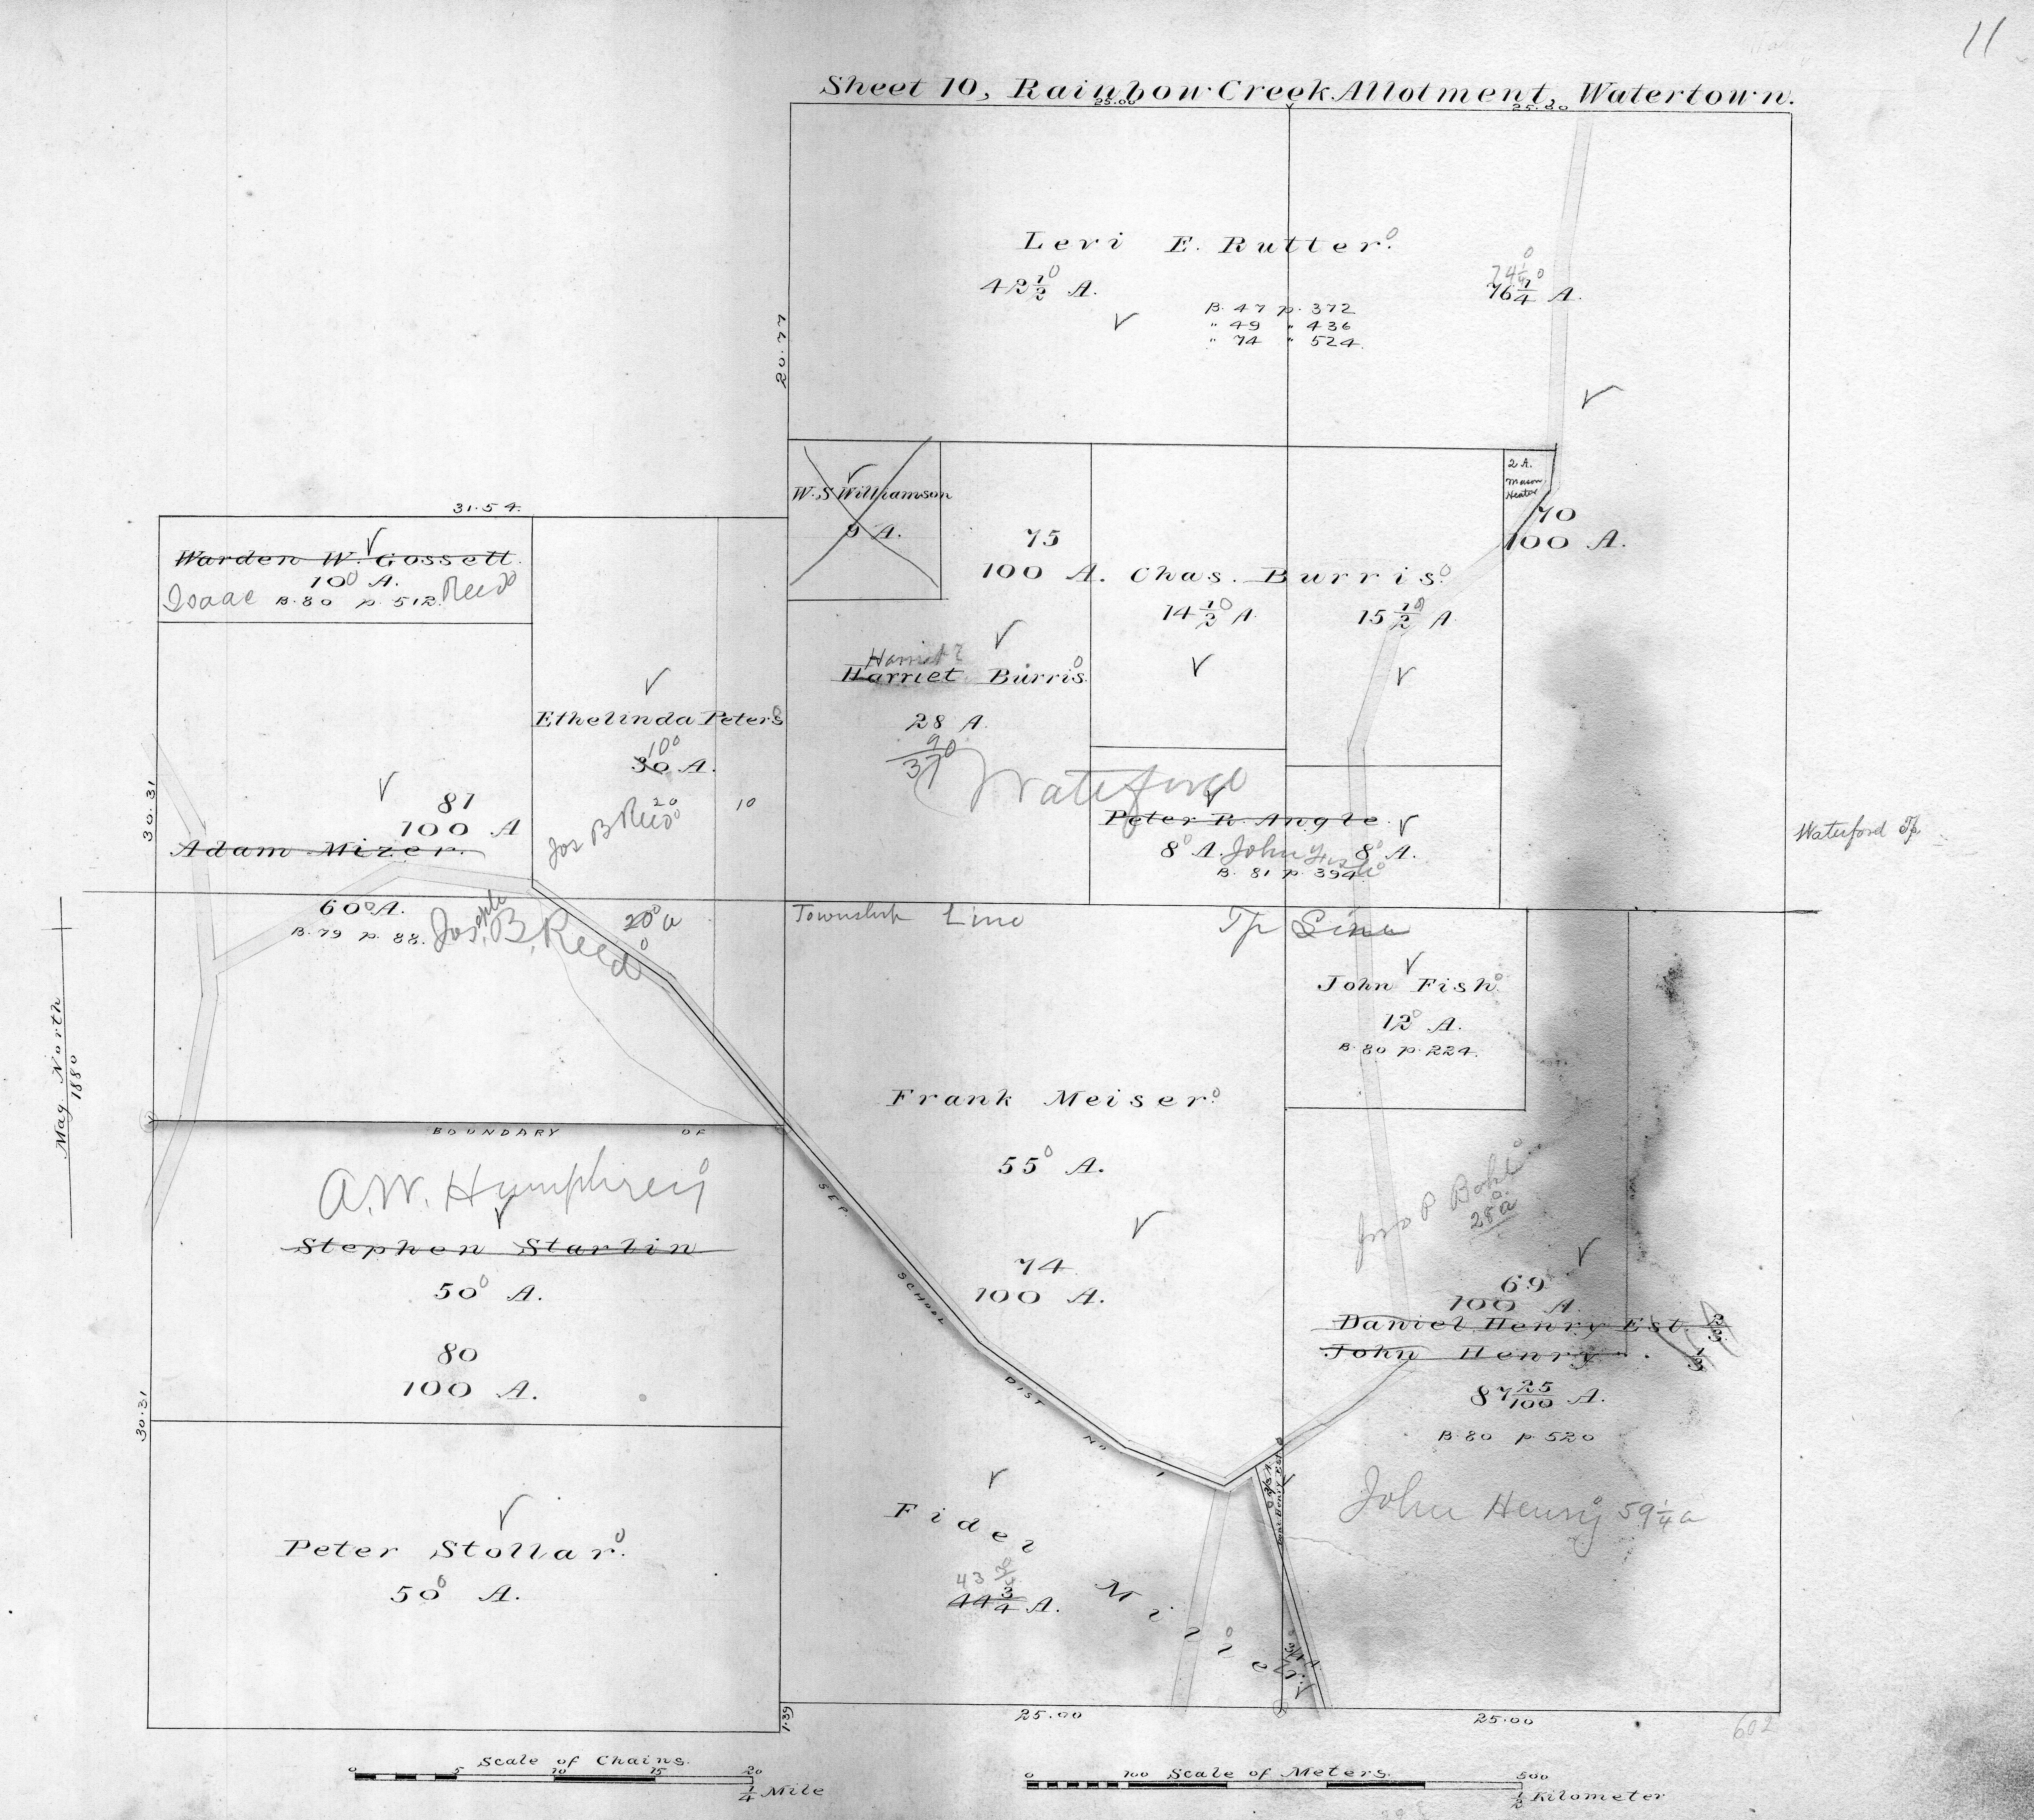 11
Sheet 10, Rainbow Creek Allotment, Watertown.
25.00
25.00
Levi E. Rutter.
42 1/2 A.
74 1/4
76 1/4 A.
B. 47 p. 372
" 49 " 436
" 74 " 524
20.77
W. S Williamson
9 A.
2 A.
Mason
Heater
70
100 A.
75
100 A.
Chas. Burris.
14 1/2 A.
15 1/2 A
31.54
Warden W. Gossett.
10 A.
Isaac Reed
B. 80 p. 512
Harriet
Harriet Burris
28 A.
9
37
Waterford
Ethelinda Peters
10
30 A.
20
Jos B Reed
10
30.31
81
100 A
Adam Mizer.
60 A.
B. 79 p. 88.
Joseph B. Reed
20 a
Peter R. Angle
8 A.
John Fish
8 A.
B. 81 p. 394
Waterford Tp
Township Line
Tp Line
John Fish
12 A.
B. 80 p. 224.
Mag. North
1880
Frank Meiser.
55 A.
74
100 A.
BOUNDARY OF
SEP. SCHOOL DIST NO. 1
A. W. Humphrey
Stephen Starlin
50 A.
80
100 A.
30.31
Jno P Bohl
28 a
69
100 A.
Daniel Henry Est. 2/3
John Henry. 1/3
87 25/100 A.
B. 80 p. 520
John Henry 59 1/4 a
Peter Stollar.
50 A.
Fidel Miller.
43 3/4
44 3/4 A.
1.39
25.00
25.00
602
Scale of Chains.
0 5 10 15 20
1/4 Mile
Scale of Meters.
0 100 500
1/2 Kilometer